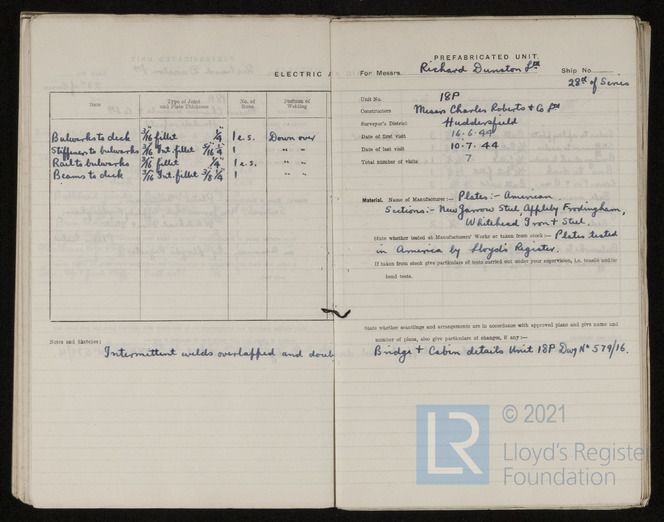 ELECTRIC A
Item
Type of Joint
and Plate Thickness
No. of
Runs
Position of
Welding
Bulwarks to deck 3/16 fillet 1/4 1 e.s. Down over
Stiffeners to bulwarks 3/16 Int. fillet 5/16 1/4 1 " "
Rail to bulwarks 3/16 fillet 1/4 1 e.s. " "
Beams to deck 3/16 Int. fillet 3/8 1/4 1 " "
Notes and Sketches:
Intermittent welds overlapped and doub
PREFABRICATED UNIT.
For Messrs. Richard Dunston Ltd Ship No.
28th of Series
Unit No. 18P
Constructors Messrs Charles Roberts & Co Ltd
Surveyor's District Huddersfield
Date of first visit 16.6.44
Date of last visit 10.7.44
Total number of visits 7
Material. Name of Manufacturer:— Plates:- American
Sections:- New Jarrow Steel, Appleby Frodingham,
Whitehead Iron & Steel.
State whether tested at Manufacturers' Works or taken from stock:— Plates tested
in America by Lloyd's Register.
If taken from stock give particulars of tests carried out under your supervision, i.e. tensile and/or
bend tests.
State whether scantlings and arrangements are in accordance with approved plans and give name and
number of plans, also give particulars of changes, if any:—
Bridge & Cabin details Unit 18P Dwg No 579/16.
© 2021
LR
Lloyd's Register
Foundation